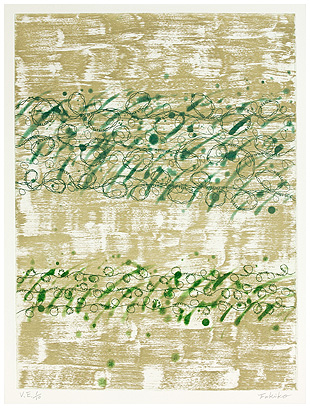 V.E. 1/5 Fukiko